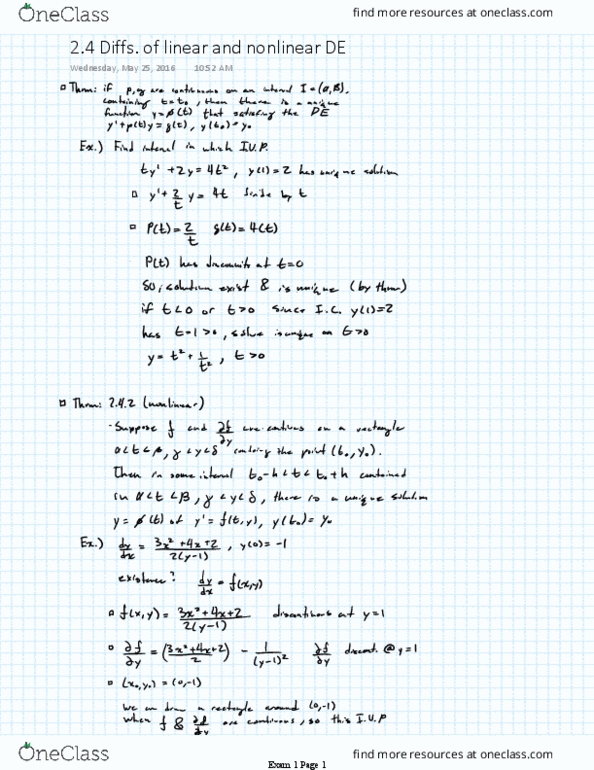 OneClass
find more resources at oneclass.com
2.4 Diffs. of linear and nonlinear DE
Wednesday, May 25, 2016 10:52 AM
Thm: if p, g are continuous on an interval I = (α, β),
containing t = t₀, then there is a unique
function y = φ(t) that satisfies the DE
y' + p(t)y = g(t), y(t₀) = y₀
Ex.) Find interval in which I.V.P.
ty' + 2y = 4t², y(1) = 2 has unique solution
y' + 2/t y = 4t divide by t
P(t) = 2/t g(t) = 4(t)
P(t) has discontinuity at t = 0
So, solution exist & is unique (by thm)
if t < 0 or t > 0 since I.C. y(1) = 2
has t = 1 > 0, solve is unique on t > 0
y = t² + 1/t², t > 0
Thm: 2.4.2 (nonlinear)
Suppose f and ∂f/∂y are continuous on a rectangle
α < t < β, γ < y < δ containing the point (t₀, y₀).
Then in some interval t₀ - h < t < t₀ + h contained
in α < t < β, γ < y < δ, there is a unique solution
y = φ(t) of y' = f(t, y), y(t₀) = y₀
Ex.) dy/dx = (3x² + 4x + 2)/(2(y - 1)), y(0) = -1
existence? dy/dx = f(x, y)
f(x, y) = (3x² + 4x + 2)/(2(y - 1)) discontinuous at y = 1
∂f/∂y = ((3x² + 4x + 2)/2) - 1/(y - 1)² ∂f/∂y discont. @ y = 1
(x₀, y₀) = (0, -1)
We can draw a rectangle around (0, -1)
when f & ∂f/∂y are continuous, so this I.V.P
OneClass
find more resources at oneclass.com
Exam 1 Page 1